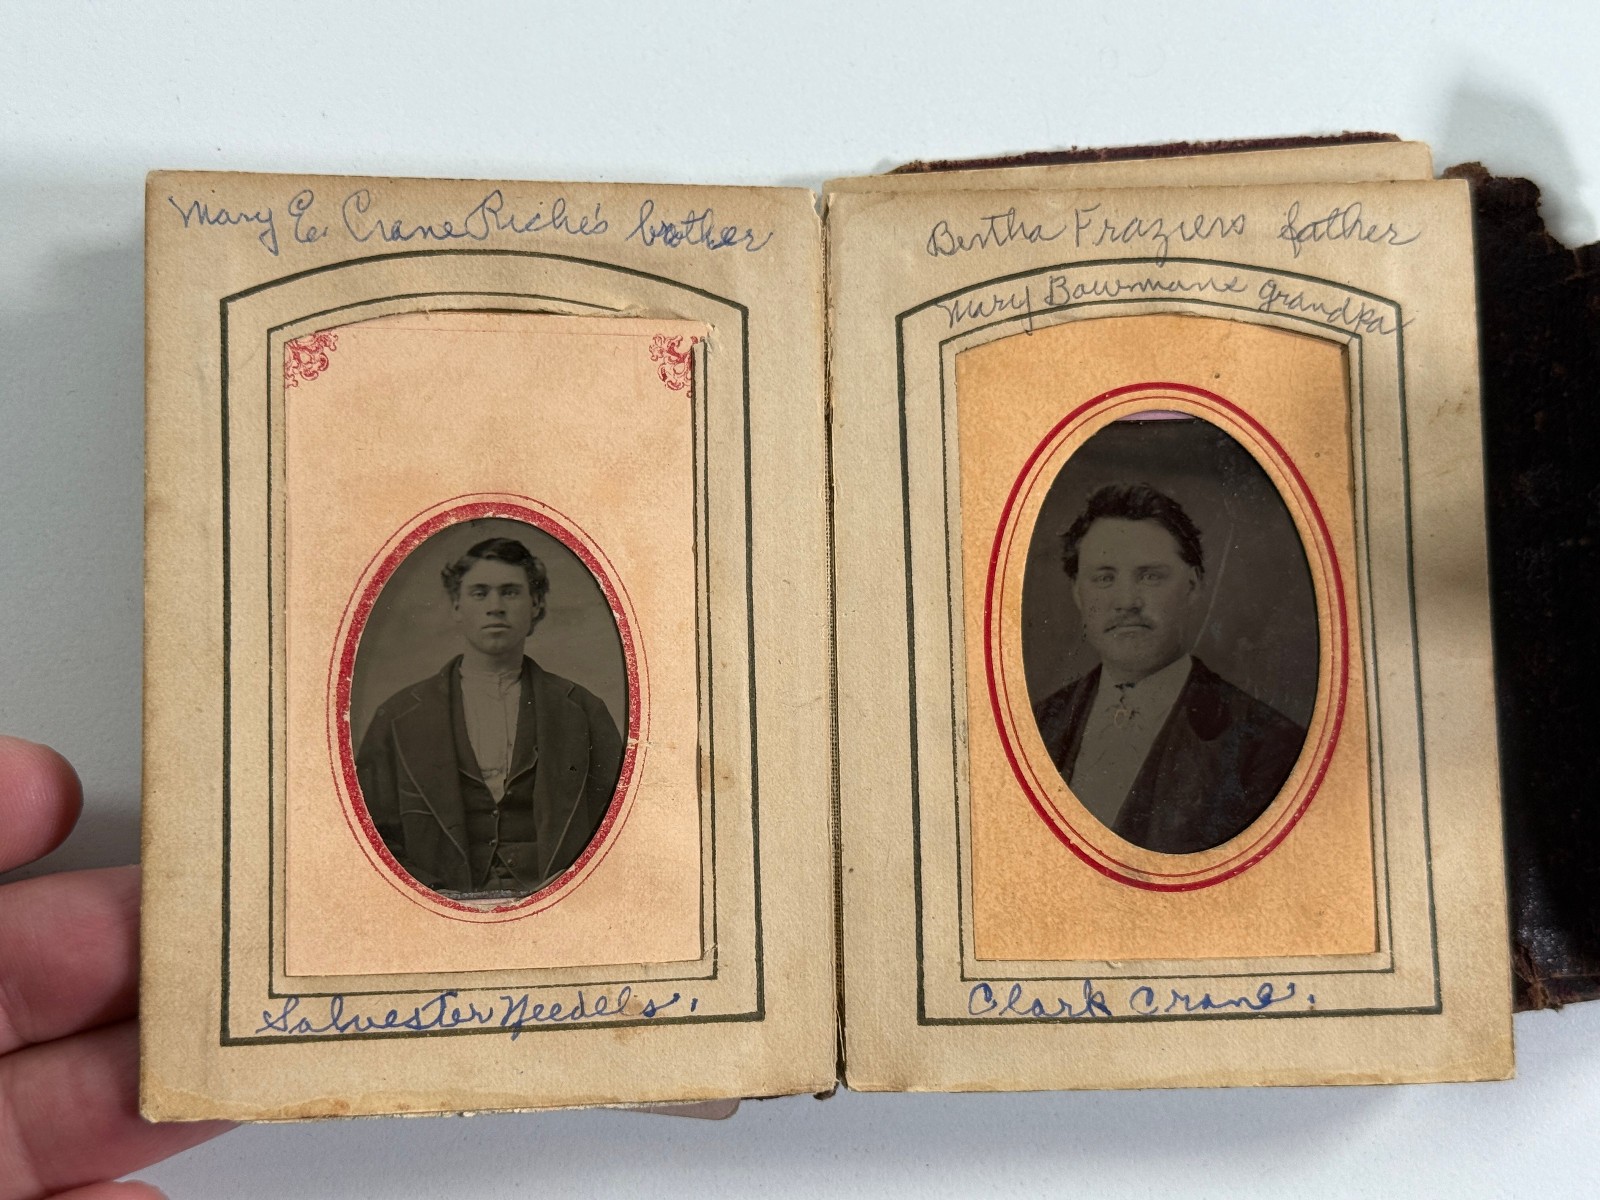 Mary E. Crane Riche's brother
Salvester Needels.
Bertha Fraziers father
Mary Bowmans grandpa
Clark Crane.